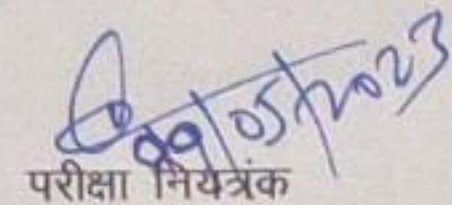 09/05/2023
परीक्षा नियंत्रक